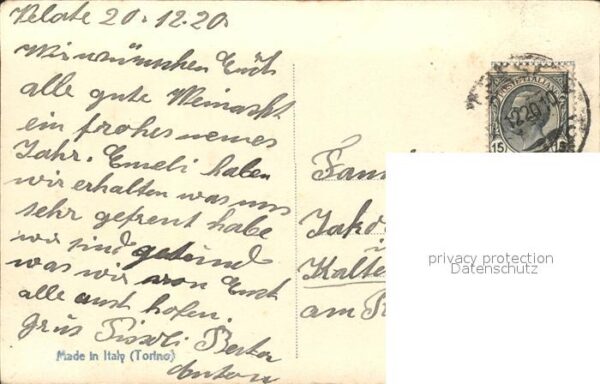 Velate 20.12.20.
Wir wünschen Euch
alle gute Weinacht
ein frohes neues
Jahr. Emeli haben
wir erhalten was uns
sehr gefreut habe
wir sind gesund
was wir von Euch
alle auch hofen.
Grüs
Anton
Made in Italy (Torino)
POSTE ITALIANE
15
Jako
Kalte
am
privacy protection
Datenschutz